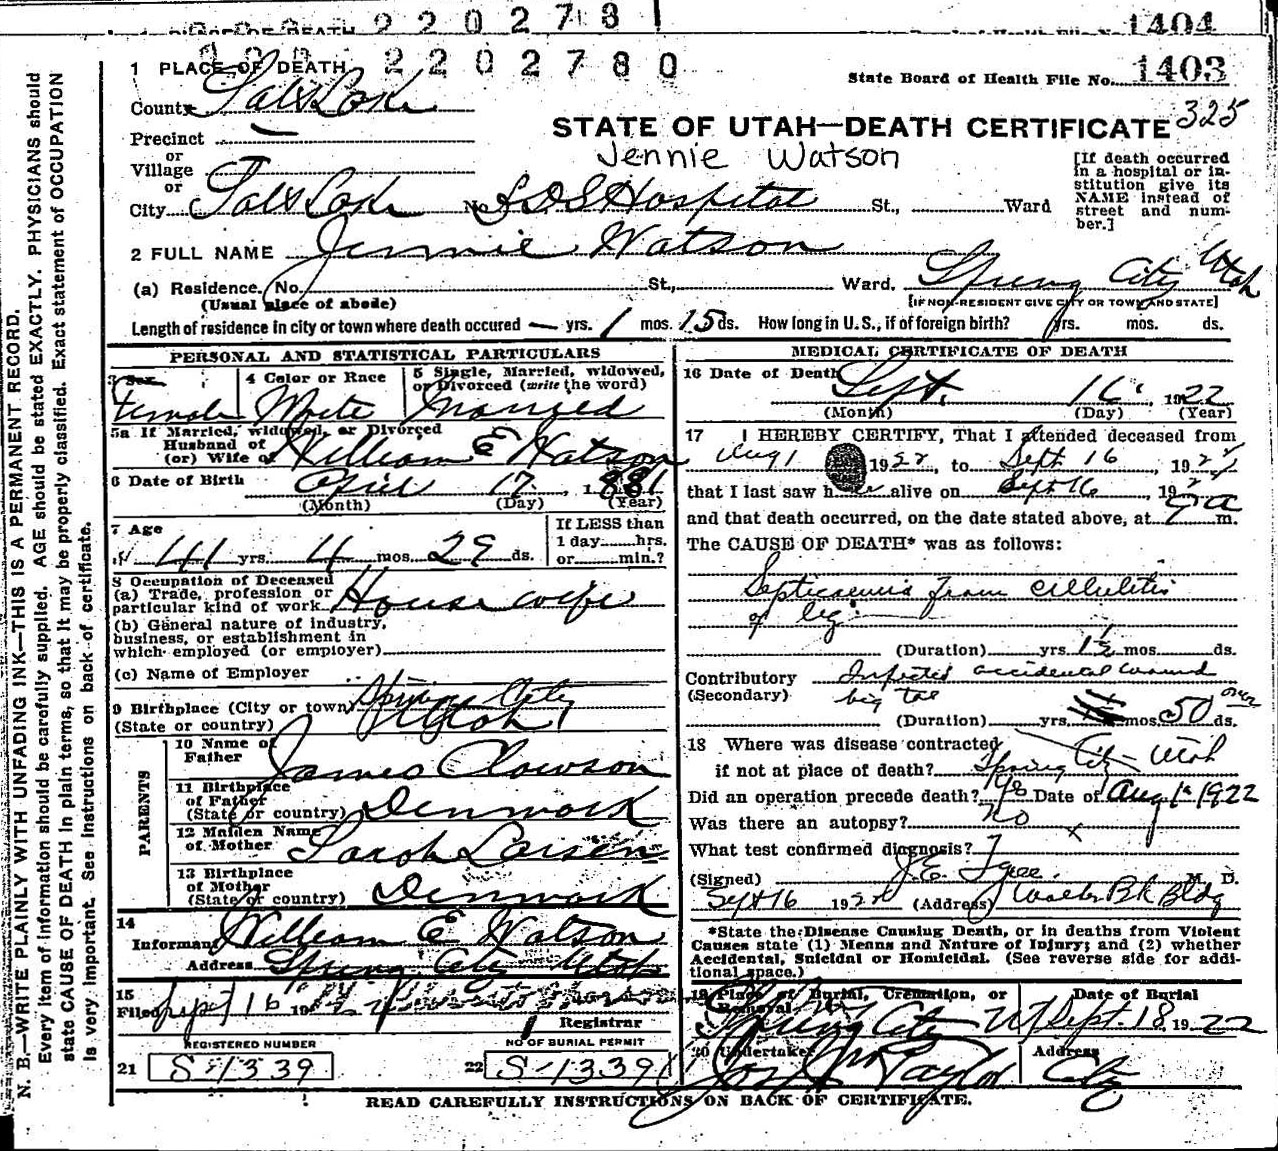 2202781
1404
2202780
1 PLACE OF DEATH
State Board of Health File No. 1403
County Salt Lake
325
STATE OF UTAH—DEATH CERTIFICATE
Precinct —
or
Village
or
Jennie Watson
[If death occurred in a hospital or institution give its NAME instead of street and number.]
City Salt Lake No. L D S Hospital St., Ward
2 FULL NAME Jennie Watson
(a) Residence. No. St., Ward. Spring City Utah
(Usual place of abode) [IF NON-RESIDENT GIVE CITY OR TOWN AND STATE]
Length of residence in city or town where death occured — yrs. 1 mos. 15 ds. How long in U.S., if of foreign birth? yrs. mos. ds.
PERSONAL AND STATISTICAL PARTICULARS
3 Sex Female
4 Color or Race White
5 Single, Married, widowed, or Divorced (write the word) Married
5a If Married, widowed, or Divorced
Husband of
(or) Wife of William E Watson
6 Date of Birth April 17, 1881
(Month) (Day) (Year)
7 Age
41 yrs. 4 mos. 29 ds.
If LESS than
1 day hrs.
or min.?
8 Occupation of Deceased
(a) Trade, profession or
particular kind of work Housewife
(b) General nature of industry,
business, or establishment in
which employed (or employer)
(c) Name of Employer
9 Birthplace (City or town) Spring City
(State or country) Utah
PARENTS
10 Name of
Father James Clawson
11 Birthplace
of Father
(State or country) Denmark
12 Maiden Name
of Mother Sarah Larsen
13 Birthplace
of Mother
(State or country) Denmark
14
Informant William E Watson
Address Spring City Utah
15
Filed Sept 16 19
Registrar
REGISTERED NUMBER
21 S-1339
NO OF BURIAL PERMIT
22 S-1339
MEDICAL CERTIFICATE OF DEATH
16 Date of Death Sept. 16, 1922
(Month) (Day) (Year)
17 I HEREBY CERTIFY, That I attended deceased from
Aug 1 1922, to Sept 16, 1922
that I last saw her alive on Sept 16, 192
and that death occurred, on the date stated above, at 7 a m.
The CAUSE OF DEATH* was as follows:
Septicaemia from cellulitis
of leg
(Duration) yrs. 1½ mos. ds.
Contributory Infected accidental wound
(Secondary) big toe
(Duration) yrs. mos. 50 ds.
18 Where was disease contracted
if not at place of death? Spring City Utah
Did an operation precede death? Yes Date of Aug 1st 1922
Was there an autopsy? No
What test confirmed diagnosis?
(Signed) J. E. Tyree. M. D.
Sept 16 192 (Address) Walker Bk Bldg
*State the Disease Causing Death, or in deaths from Violent
Causes state (1) Means and Nature of Injury; and (2) whether
Accidental, Suicidal or Homicidal. (See reverse side for additional space.)
19 Place of Burial, Cremation, or
Removal Spring City Ut
Date of Burial
Sept. 18, 1922
20 Undertaker Jos. Wm Taylor
Address
City
READ CAREFULLY INSTRUCTIONS ON BACK OF CERTIFICATE.
N. B.—WRITE PLAINLY WITH UNFADING INK—THIS IS A PERMANENT RECORD.
Every item of information should be carefully supplied. AGE should be stated EXACTLY. PHYSICIANS should
state CAUSE OF DEATH in plain terms, so that it may be properly classified. Exact statement of OCCUPATION
is very important. See instructions on back of certificate.